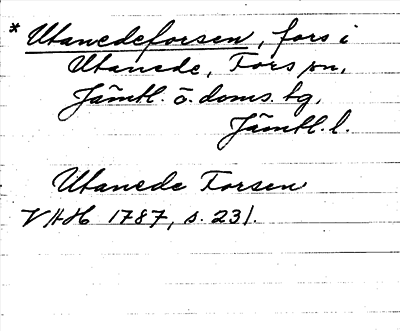 * Utanedeforsen, fors i
Utanede, Fors sn,
Jämtl. ö. doms. tg,
Jämtl. l.
Utanede Forsen
VHH 1787, s. 231.